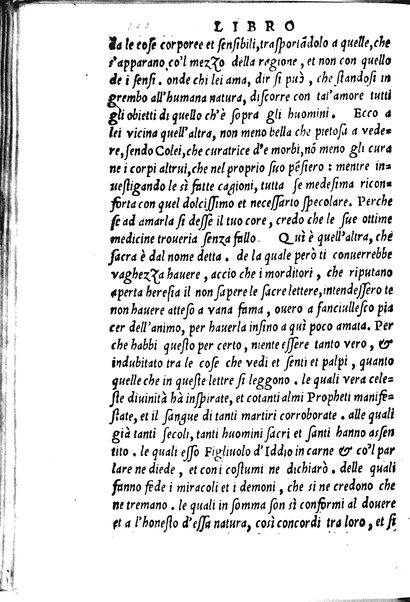 LIBRO
da le cose corporee et sensibili, trasportãdolo a quelle, che
s'apparano co'l mezzo della regione, et non con quello
de i sensi. onde chi lei ama, dir si può, che standosi in
grembo all'humana natura, discorre con tal'amore tutti
gli obietti di quello ch'è sopra gli huomini. Ecco a
lei vicina quell'altra, non meno bella che pietosa a vede-
re, sendo Colei, che curatrice d'e morbi, nõ meno gli cura
ne i corpi altrui, che nel proprio suo pẽsiero: mentre in-
uestigando le sì fatte cagioni, tutta se medesima ricon-
forta con quel dolcissimo et necessario specolare. Perche
se ad amarla si desse il tuo core, credo che le sue ottime
medicine troueria senza fallo. Quì è quell'altra, che
sacra è dal nome detta. de la quale però ti conuerrebbe
vaghezza hauere, accio che i morditori, che riputano
aperta heresia il non sapere le sacre lettere, intendessero te
non hauere atteso a vana fama, ouero a fanciullesco pia
cer dell'animo, per hauerla insino a quì poco amata. Per
che habbi questo per certo, niente essere tanto vero, &
indubitato tra le cose che vedi et senti et palpi, quanto
quelle che in queste lettre si leggono. le quali vera cele-
ste diuinità hà inspirate, et cotanti almi Propheti manife-
state, et il sangue di tanti martiri corroborate. alle quali
già tanti secoli, tanti huomini sacri et santi hanno assen
tito. le quali esso Figliuolo d'Iddio in carne & co'l par
lare ne diede, et con i costumi ne dichiarò. delle quali
fanno fede i miracoli et i demoni, che si ne credono che
ne tremano. le quali in somma son sì conformi al douere
et a l'honesto d'essa natura, così concordi tra loro, et sì